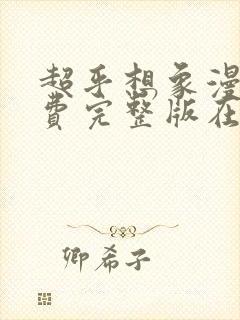 超乎想象漫
费完整版在
卿希子